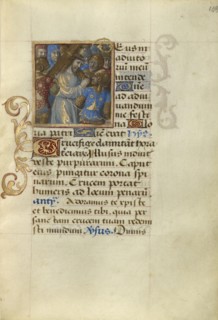 Deus in
adiuto
riu meu
intende
ad
adiuvan
dum me festi
na Glo
ria patri sicut
Crucifige clamitat hora
terciarum Illusus induit
veste purpurarum Caput
eius pungitur corona spi
narum Crucem portat
humeris ad locum penarum
anty. Adoramus te xpiste
et benedicimus tibi, quia per
sanctam crucem tuam redemi
sti mundum